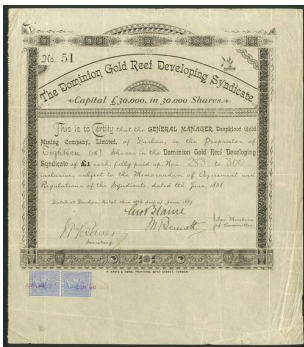 No. 51
The Dominion Gold Reef Developing Syndicate
Capital £30,000, in 30,000 Shares.
This is to Certify that the GENERAL MANAGER, Deepkloof Gold
Mining Company, Limited, of Durban, is the Proprietor of
Eighteen (18) Shares in the Dominion Gold Reef Developing
Syndicate of £1 each, fully paid up, Nos. 283 to 300
inclusive, subject to the Memorandum of Agreement and
Regulations of the Syndicate, dated 6th June,
Dated at Durban, Natal, this day of June
Two Members
of Committee
Secretary